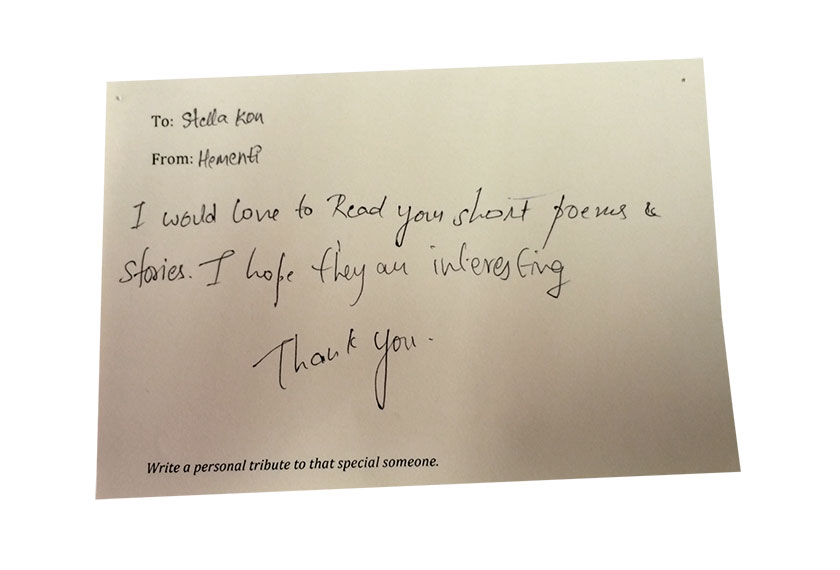 To: Stella Kon
From: Hementi
I would love to Read your short poems &
Stories. I hope they are interesting
Thank you.
Write a personal tribute to that special someone.